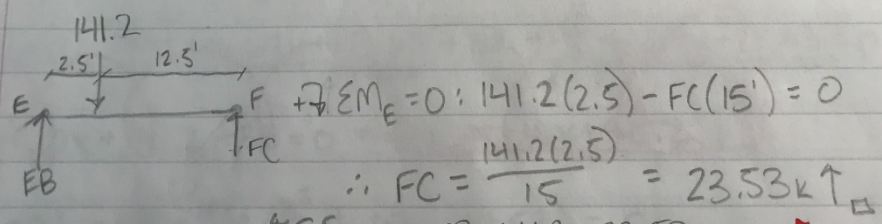 141.2
2.5' 12.5'
E F +↷ ΣM_E = 0 : 141.2(2.5) - FC(15') = 0
EB FC
∴ FC = 141.2(2.5) / 15 = 23.53k ↑